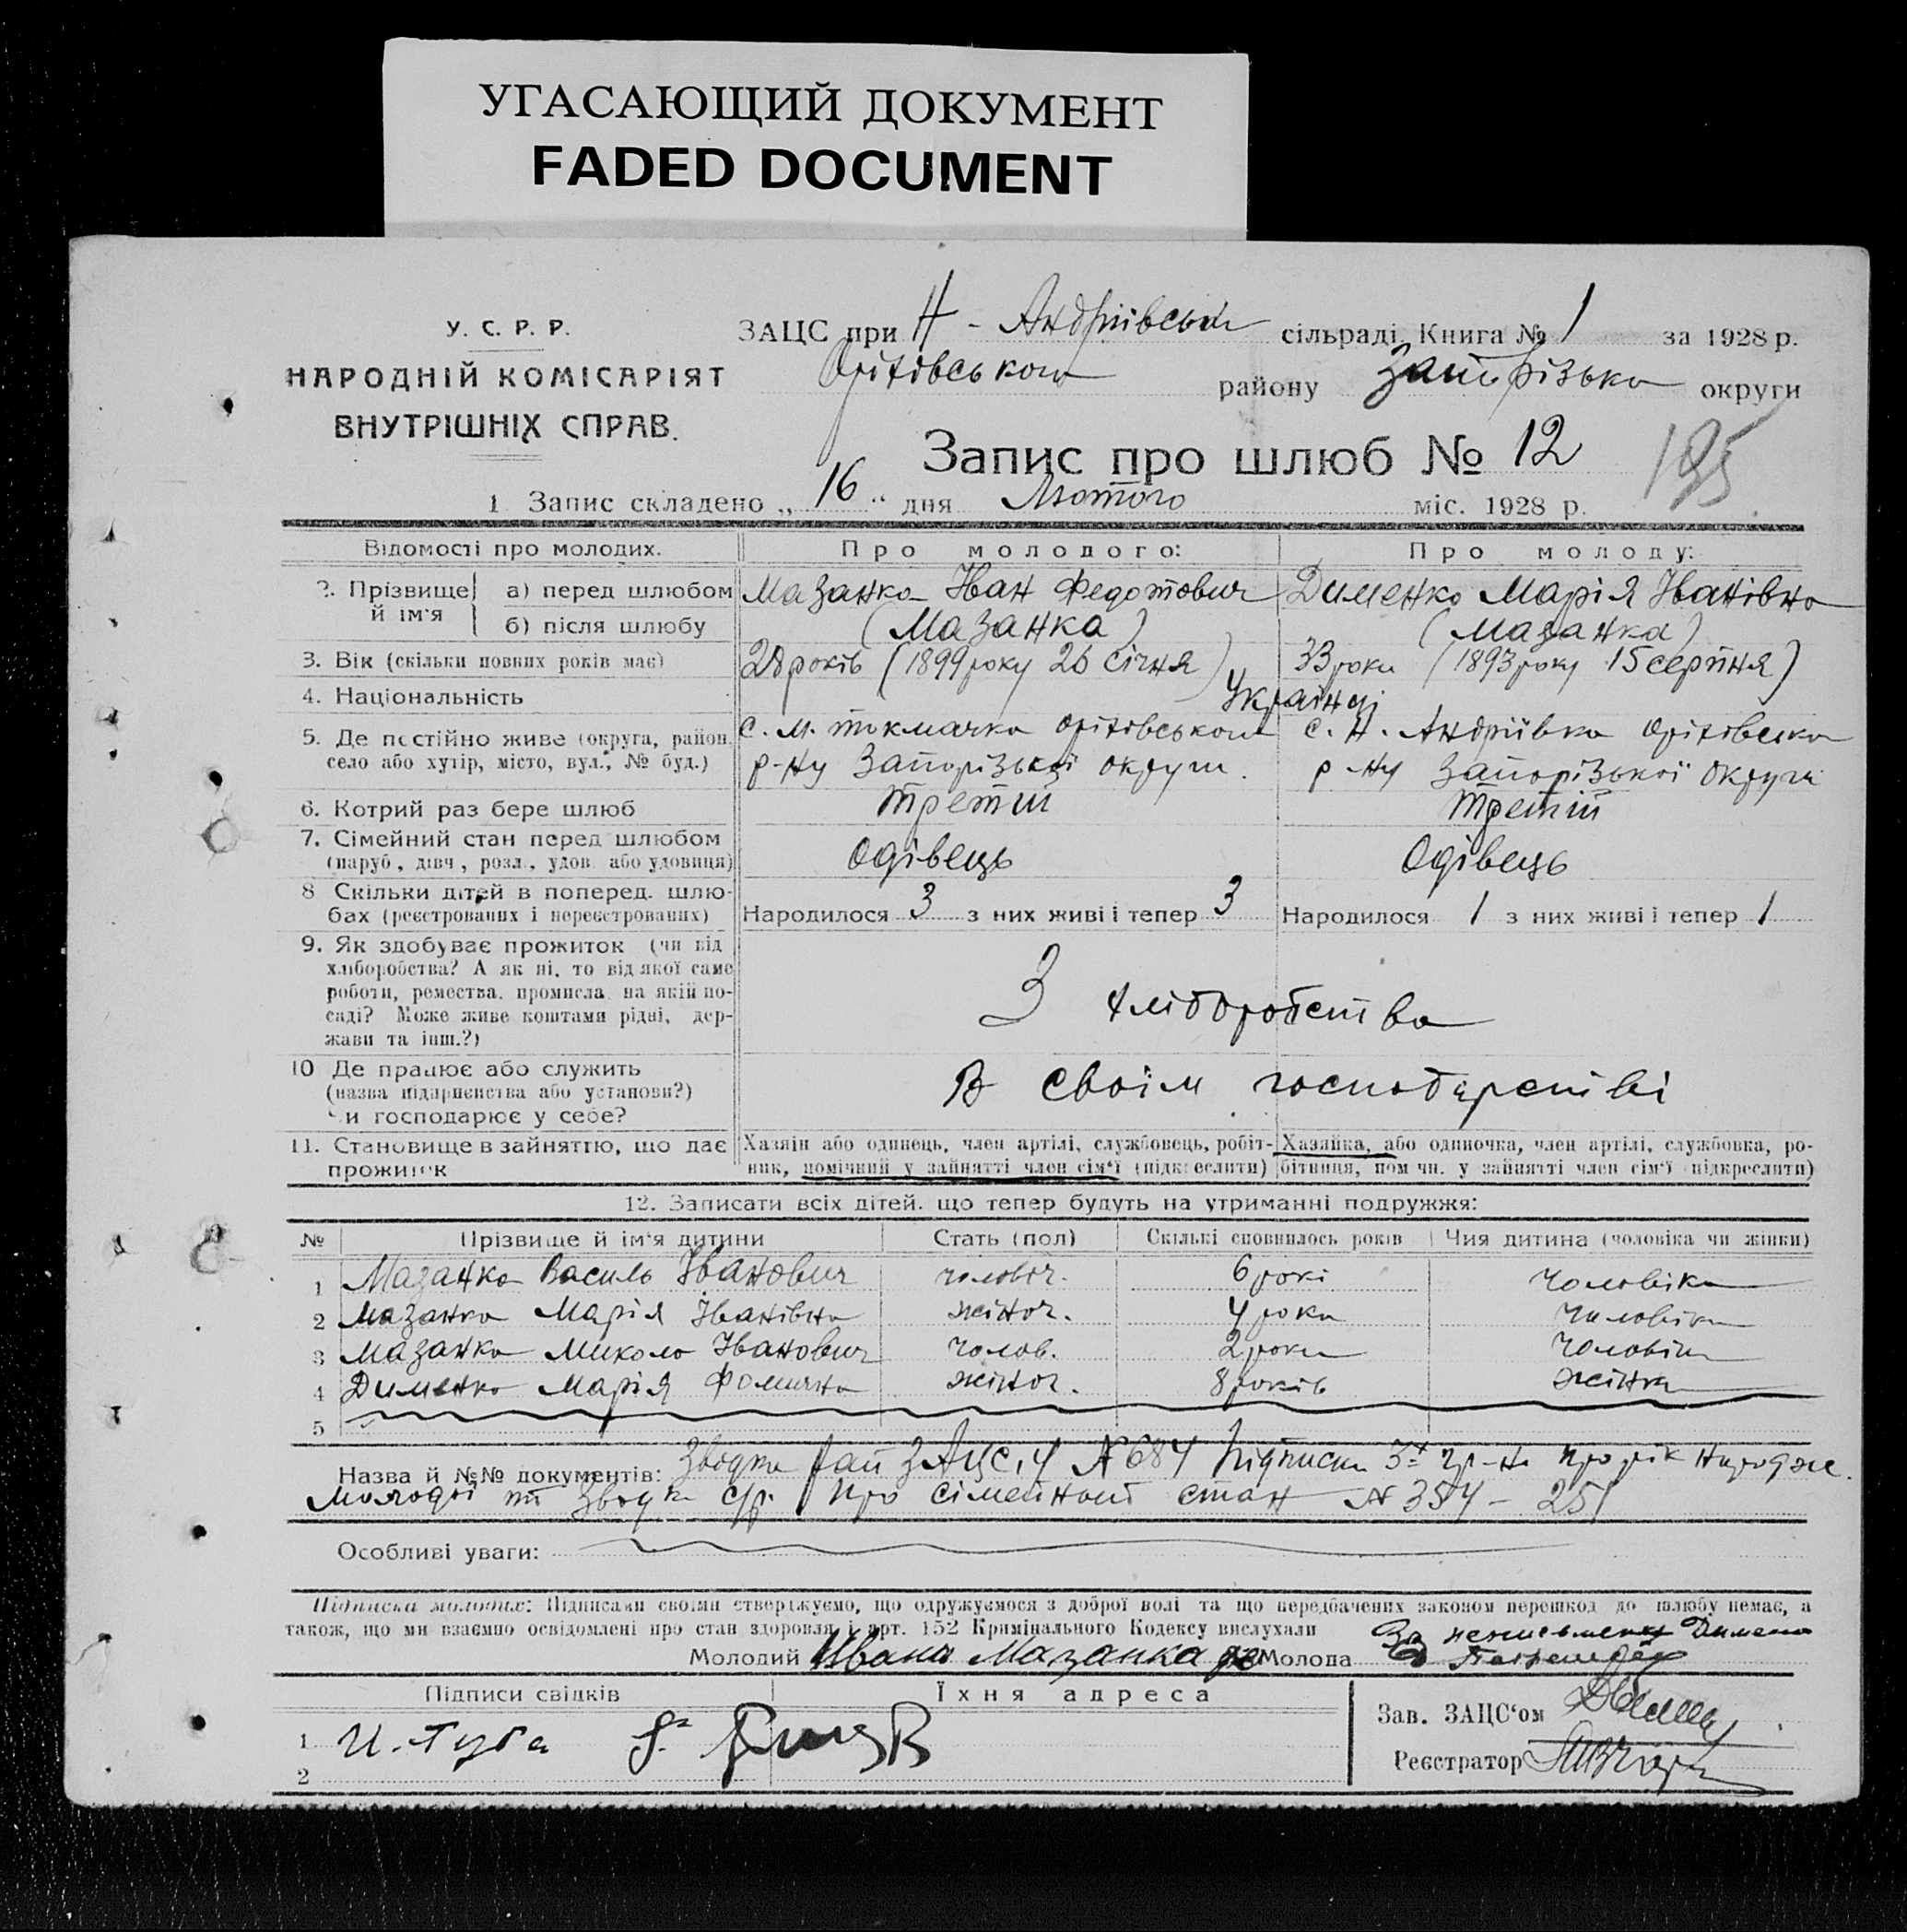 УГАСАЮЩИЙ ДОКУМЕНТ
FADED DOCUMENT
У. С. Р. Р.
НАРОДНІЙ КОМІСАРІЯТ
ВНУТРІШНІХ СПРАВ.
ЗАЦС при Н-Андріївські сільраді Книга № 1 за 1928 р.
Оріхівського району Запорізько округи
Запис про шлюб № 12
195
1 Запис складено „ 16 “ дня Лютого міс. 1928 р.
Відомості про молодих. Про молодого: Про молоду:
2. Прізвище й ім'я а) перед шлюбом Мазанко Іван Федотович Дименко Марія Іванівно
б) після шлюбу (Мазанка) (Мазанка)
3. Вік (скільки повних років має) 28 років (1899 року 26 січня) 33 роки (1893 року 15 серпня)
4. Національність Українці
5. Де постійно живе (округа, район, село або хутір, місто, вул., № буд.)
с. М. токмачка оріхівського р-ну Запорізької округи.
с. Н. Андріївка Оріхівсько р-ну Запорізької округи
6. Котрий раз бере шлюб третій третій
7. Сімейний стан перед шлюбом (паруб, дівч, розл., удов або удовиця) Одівець Одівець
8 Скільки дітей в поперед. шлюбах (реєстрованих і нереєстрованих)
Народилося 3 з них живі і тепер 3 Народилося 1 з них живі і тепер 1
9. Як здобуває прожиток (чи від
хліборобства? А як ні, то від якої саме
роботи, ремества, промисла, на якій по-
саді? Може живе коштами рідні, дер-
жави та інш.?)
З хліборобства
10 Де працює або служить
(назва підприємства або установи?)
Чи господарює у себе?
В своїм господарстві
11. Становище в зайняттю, що дає прожиток
Хазяїн або одинець, член артілі, службовець, робіт-
ник, помічний у зайнятті член сім'ї (підкреслити)
Хазяйка, або одиночка, член артілі, службовка, ро-
бітниця, помічн. у зайнятті член сім'ї (підкреслити)
12. Записати всіх дітей, що тепер будуть на утриманні подружжя:
№ Прізвище й ім'я дитини Стать (пол) Скількі сповнилось років Чия дитина (чоловіка чи жінки)
1 Мазанко Василь Іванович чоловіч. 6 рокі чоловіка
2 Мазанко Марія Іванівно жіноч. 4 роки чоловіка
3 Мазанко Миколо Іванович чолов. 2 роки чоловіка
4 Дименко Марія Фомична жіноч. 8 років жінки
5
Назва й №№ документів: Зводка Рай ЗАЦС,у № 684 Підписки 3х гр-н про рік народж.
Молодої та Зводка с/р. про сімейний стан № 354 - 251
Особливі уваги:
Підписка молодих: Підписами своїми стверджуємо, що одружуємося з доброї волі та що передбачених законом перешкод до шлюбу немає, а
також, що ми взаємно освідомлені про стан здоровля і арт. 152 Кримінального Кодексу вислухали
За неписьменну Дименко
Молодий Иван Мазанка Молода
Підписи свідків Їхня адреса
1 И. Губа
2
Зав. ЗАЦС'ом
Реєстратор